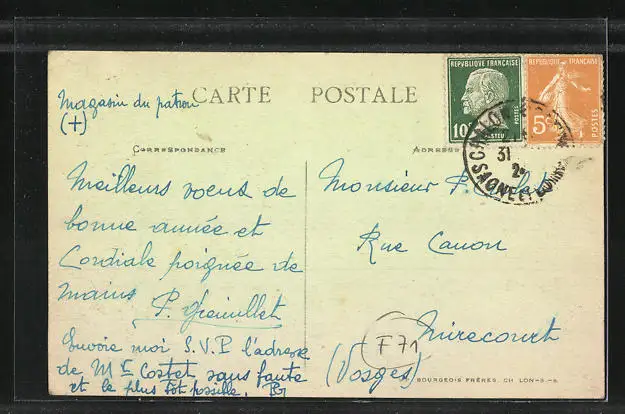 Magasin du patron
(+)
CARTE POSTALE
RÉPUBLIQUE FRANÇAISE
10c
POSTES
PASTEUR
RÉPUBLIQUE FRANÇAISE
5c
POSTES
31
SAONE ET LOIRE
CORRESPONDANCE
ADRESSE
Meilleurs voeux de
bonne année et
Cordiale poignée de
mains P.
Envoie moi S.V.P l'adresse
de Mr Costet sans faute
et le plus tot possible. PG
Monsieur P.
Rue Canon
Mirecourt
(Vosges)
F71
BOURGEOIS FRÈRES. CHALON-S.-S.